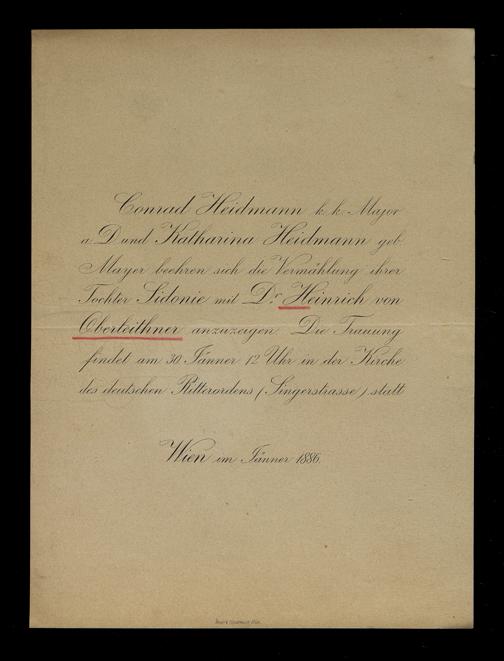 Conrad Heidmann k. k. Major
a. D. und Katharina Heidmann geb.
Mayer beehren sich die Vermählung ihrer
Tochter Sidonie mit Dr. Heinrich von
Oberleithner anzuzeigen. Die Trauung
findet am 30 Jänner 12 Uhr in der Kirche
des deutschen Ritterordens (Singerstrasse) statt
Wien im Jänner 1886.